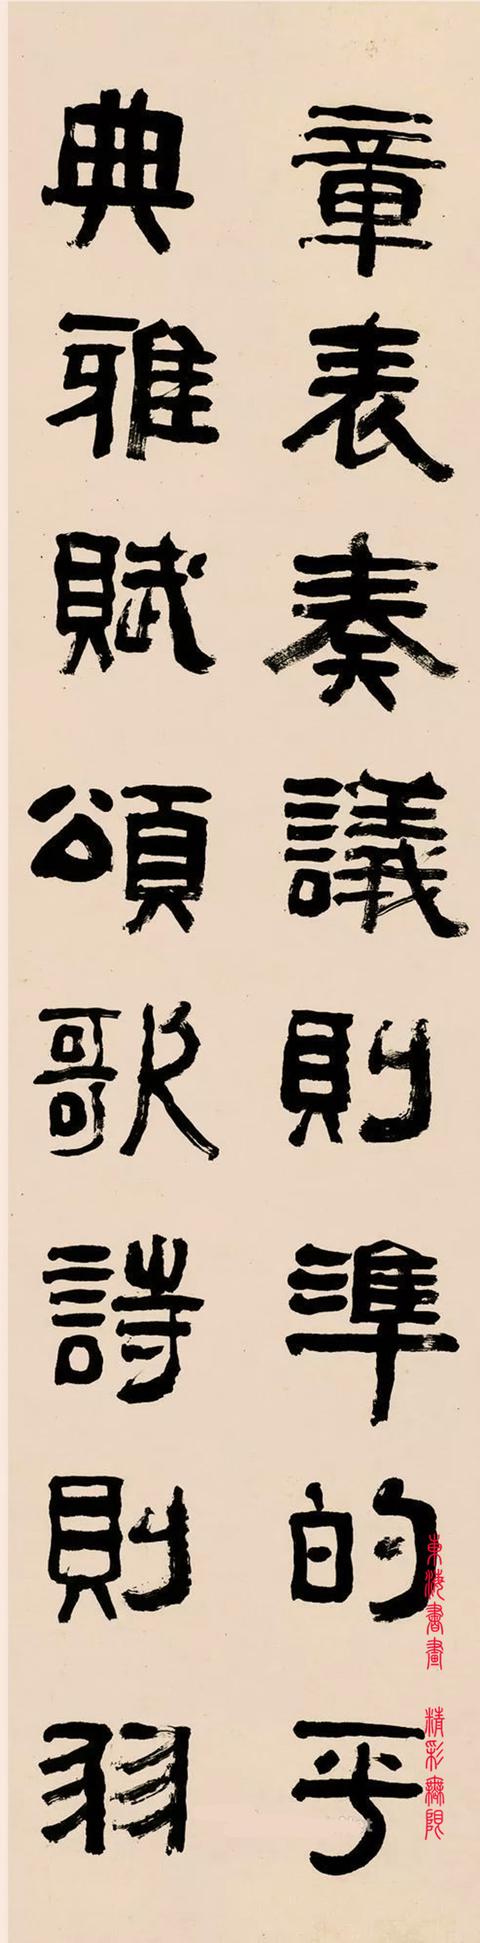 章表奏議則準的乎
典雅賦頌歌詩則羽
東海書畫 精彩無限